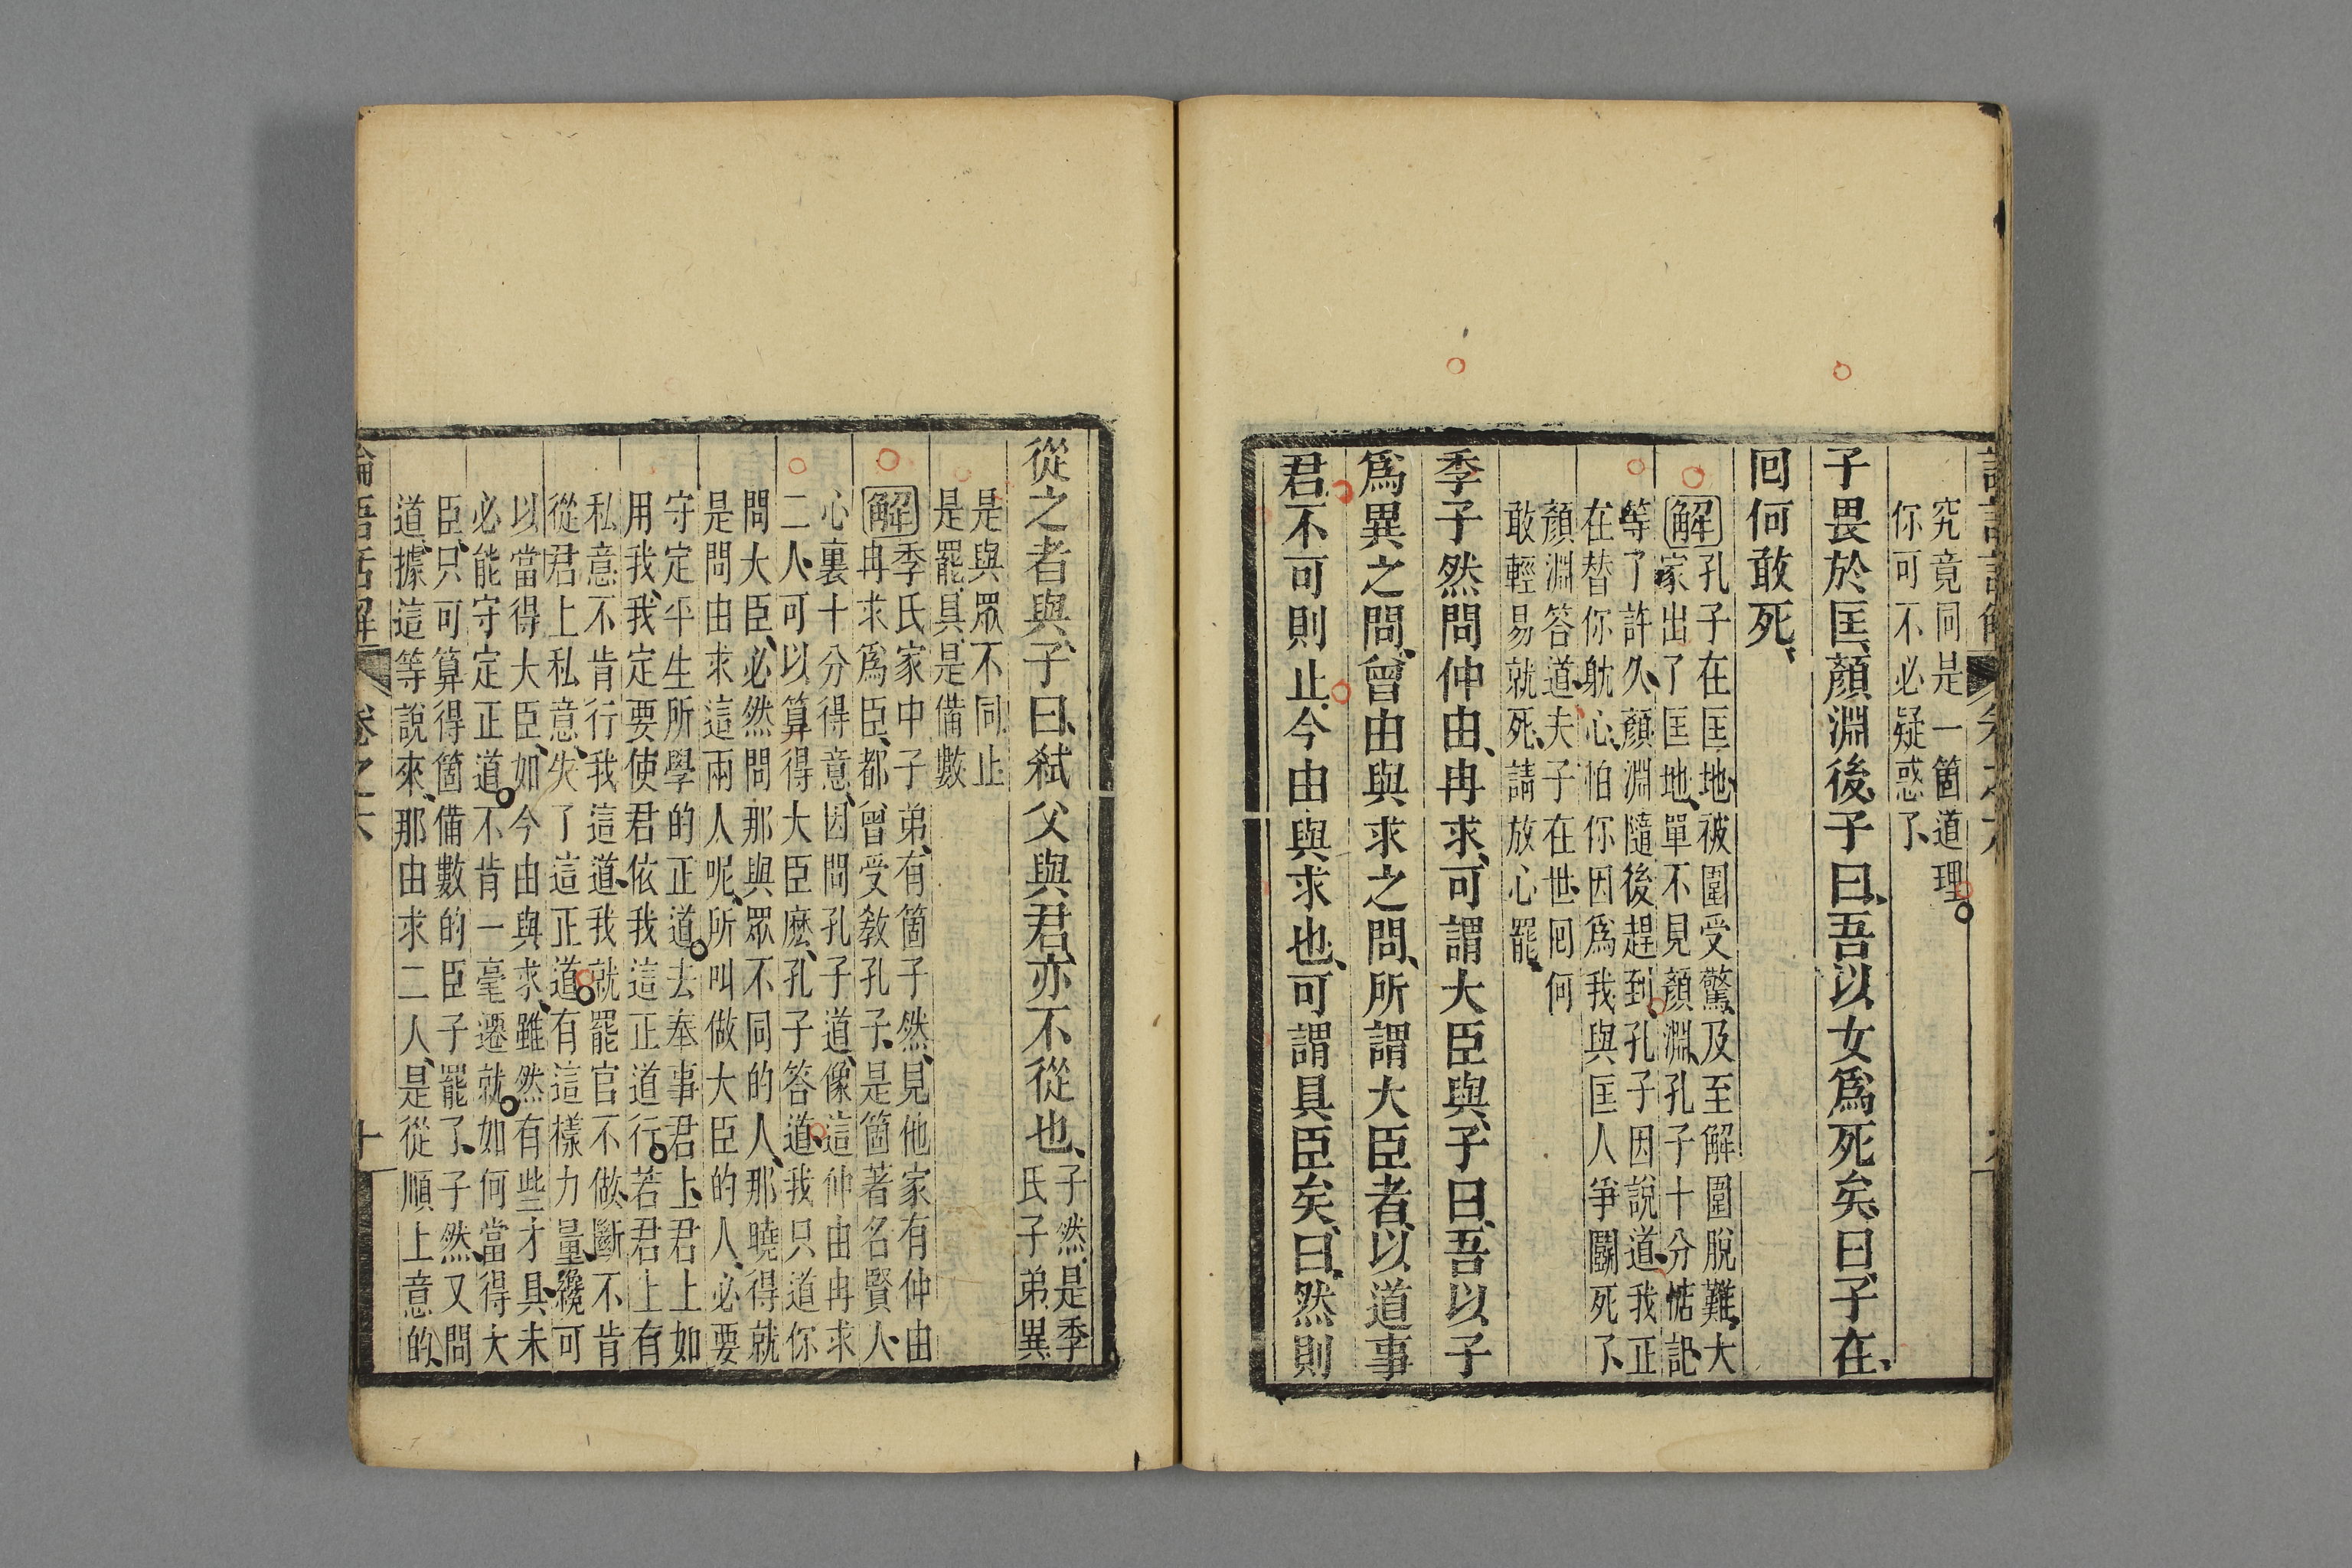 究竟同是一箇道理
你可不必疑惑了、
子畏於匡、顏淵後、子曰、吾以女爲死矣、曰、子在、
囘何敢死、
解孔子在匡地、被圍受驚、及至解圍脫難、大
家出了匡地、單不見顏淵、孔子十分惦記、
等了許久、顏淵隨後趕到、孔子因說道、我正
在替你躭心、怕你因爲我與匡人爭鬭死了、
顏淵答道、夫子在世、囘何
敢輕易就死、請放心罷、
季子然問仲由、冉求、可謂大臣與、子曰、吾以子
爲異之問、曾由與求之問、所謂大臣者、以道事
君、不可則止、今由與求也、可謂具臣矣、曰、然則
從之者與、子曰、弒父與君、亦不從也、
子然、是季
氏子弟、異
是與眾不同、止
是罷、具是備數
解季氏家中子弟、有箇子然、見他家有仲由
冉求爲臣、都曾受敎孔子、是箇著名賢人、
心裏十分得意、因問孔子道、像這仲由冉求
二人、可以算得大臣麽、孔子答道、我只道你
問大臣、必然問那與眾不同的人、那曉得就
是問由求這兩人呢、所叫做大臣的人、必要
守定平生所學的正道、去奉事君上、君上如
用我、我定要使君依我這正道行、若君上有
私意不肯行我這道、我就罷官不做、斷不肯
從君上私意、失了這正道、有這樣力量、纔可
以當得大臣、如今由與求、雖然有些才具、未
必能守定正道、不肯一毫遷就、如何當得大
臣、只可算得箇備數的臣子罷了、子然、又問
道、據這等說來、那由求二人、是從順上意的、
論語話解 卷之六 十